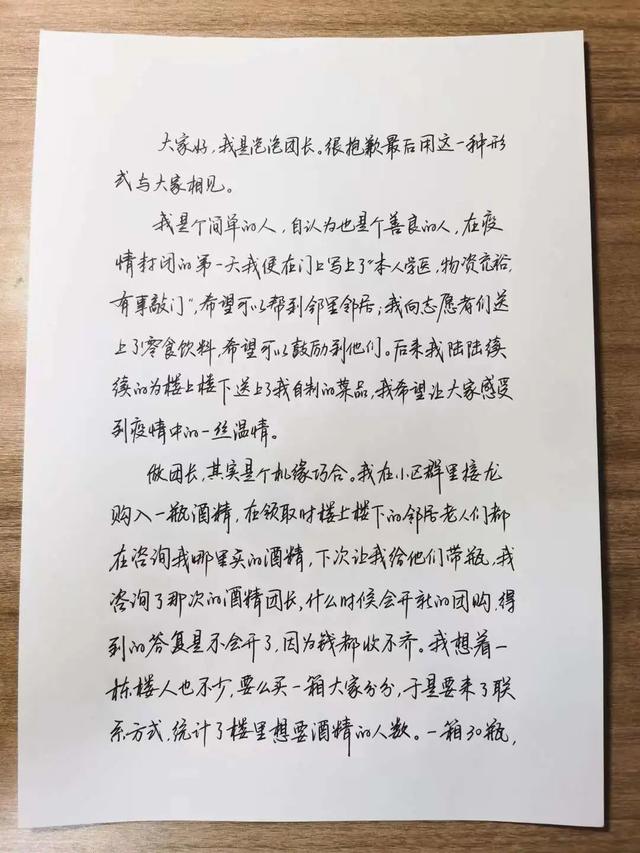 大家好，我是泡泡团长。很抱歉最后用这一种形
式与大家相见。
我是个简单的人，自认为也是个善良的人，在疫
情封闭的第一天我便在门上写上了“本人学医，物资充裕，
有事敲门”，希望可以帮到邻里邻居；我向志愿者们送
上了零食饮料，希望可以鼓励到他们。后来我陆陆续
续的为楼上楼下送上了我自制的菜品，我希望让大家感受
到疫情中的一丝温情。
做团长，其实是个机缘巧合。我在小区群里接龙
购入一瓶酒精，在领取时楼上楼下的邻居老人们都
在咨询我哪里买的酒精，下次让我给他们带瓶，我
咨询了那次的酒精团长，什么时候会开新的团购，得
到的答复是不会开了，因为钱都收不齐。我想着一
栋楼人也不少，要么买一箱大家分分，于是要来了联
系方式，统计了楼里想要酒精的人数。一箱30瓶，